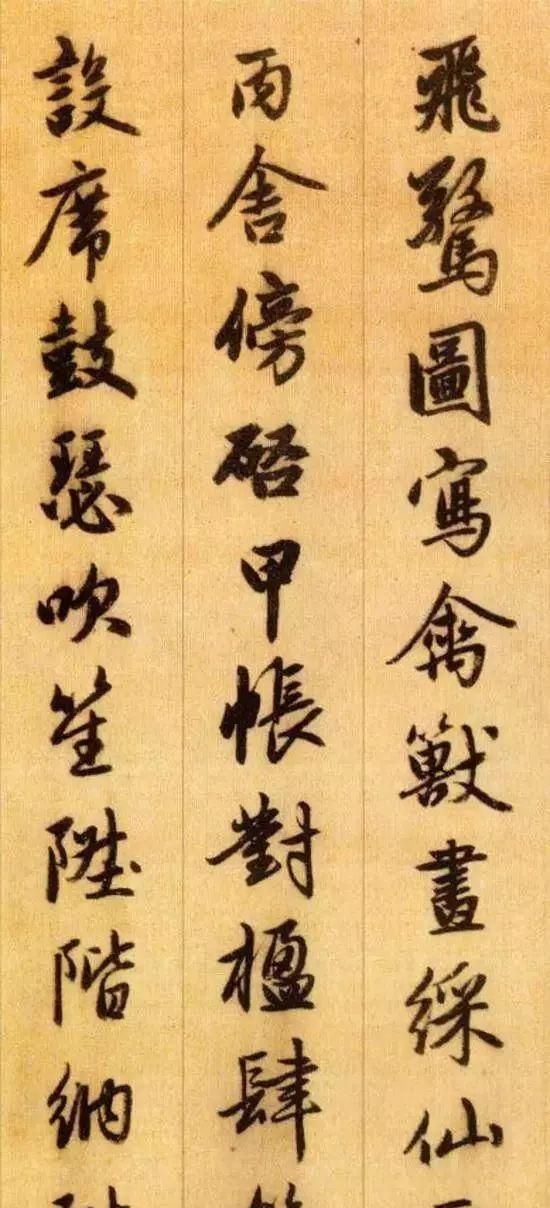 飛驚圖寫禽獸畫綵仙
丙舍傍啓甲帳對楹肆
設席鼓瑟吹笙陞階納